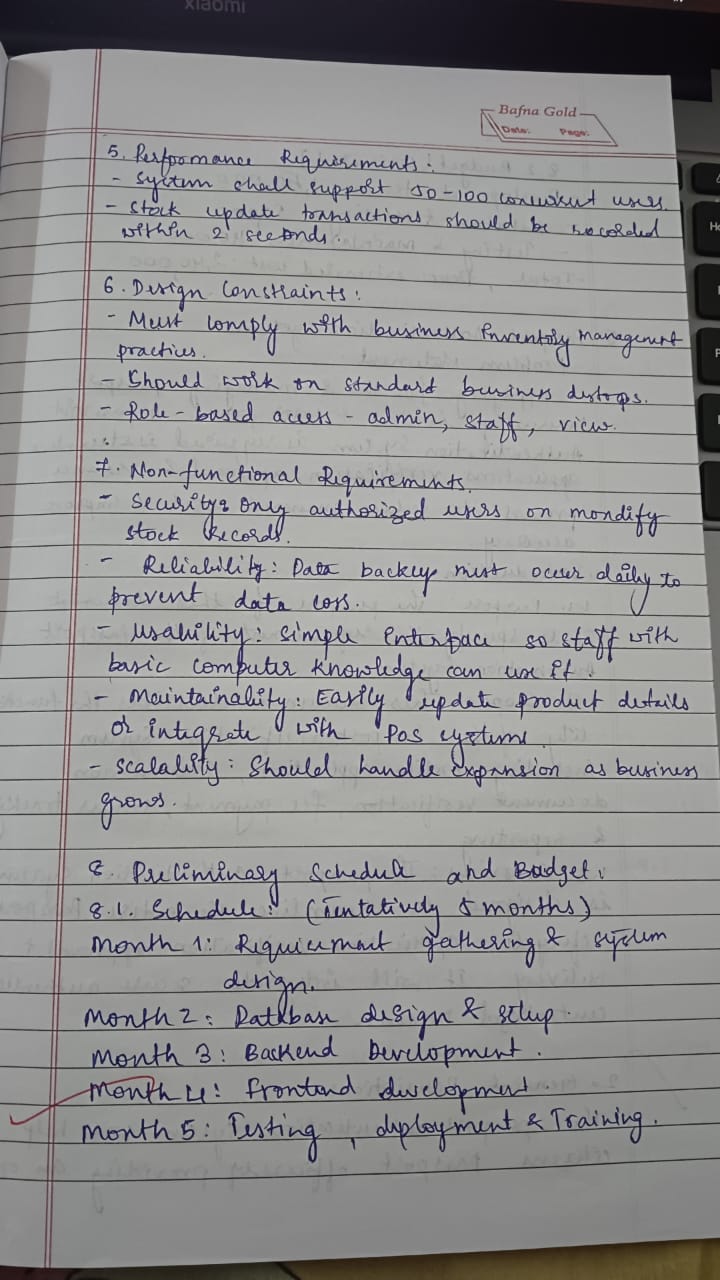 xiaomi
Bafna Gold
Date: Page:
5. Performance Requirements:
- System shall support 50-100 concurrent users.
- Stock update transactions should be recorded
within 2 seconds.
6. Design Constraints:
- Must comply with business Inventory Management
practices.
- Should work on standard business destops.
- Role-based access - admin, staff, view.
7. Non-functional Requirements.
- Security: Only authorized users on mondify
stock records.
- Reliability: Data backup must occur daily to
prevent data loss.
- Usability: Simple Interface so staff with
basic computer knowledge can use it.
- Maintainality: Easily update product details
or integrate with POS systems.
- Scalality: Should handle expansion as business
grows.
8. Preliminary Schedule and Budget:
8.1. Schedule: (Tentatively 5 months)
Month 1: Requirement gathering & system
design.
Month 2: Database design & setup.
Month 3: Backend Development.
Month 4: Frontend development.
Month 5: Testing, deployment & Training.